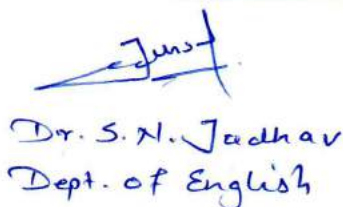 Dr. S. N. Jadhav
Dept. of English